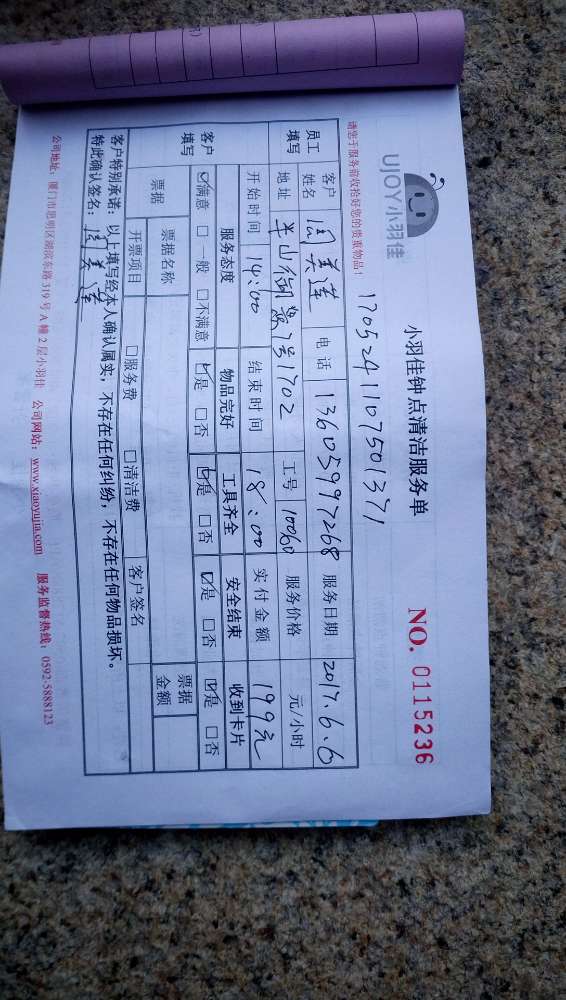 UJOY小羽佳
小羽佳钟点清洁服务单
NO. 0115236
请您于服务前收拾好您的贵重物品!
1705241107501371
员工填写 客户姓名 阎美莲 电话 13605997268 服务日期 2017.6.6
地址 半山御景7号1702 工号 10060 服务价格 元/小时
开始时间 14:00 结束时间 18:00 实付金额 199元
客户填写 服务态度 物品完好 工具齐全 安全结束 收到卡片
☑满意 □一般 □不满意 ☑是 □否 ☑是 □否 ☑是 □否 ☑是 □否
票据 票据名称 票据金额
开票项目 □服务费 □清洁费 客户签名
客户特别承诺:以上填写经本人确认属实,不存在任何纠纷,不存在任何物品损坏。
特此确认签名:阎美莲
公司地址:厦门市思明区湖滨东路319号A幢2层小羽佳 公司网站:www.xiaoyujia.com 服务监督热线:0592-5888123